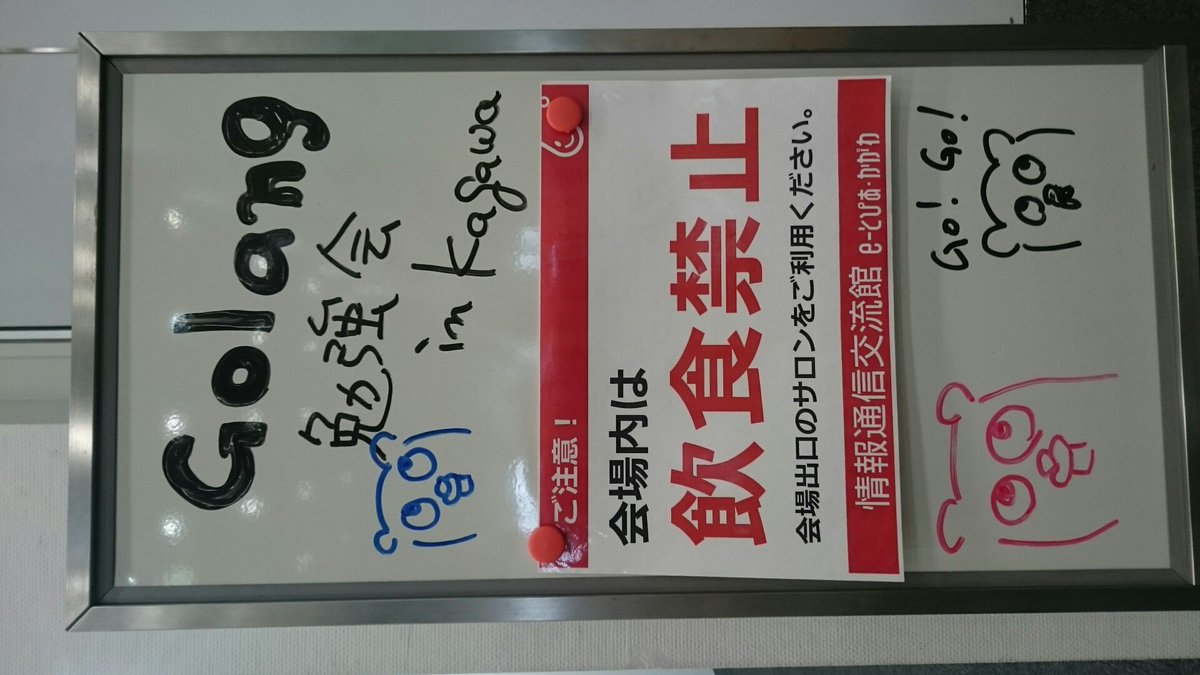 Golang
勉強会
in Kagawa
ご注意！
会場内は
飲食禁止
会場出口のサロンをご利用ください。
情報通信交流館 e-とぴあ・かがわ
Go! Go!